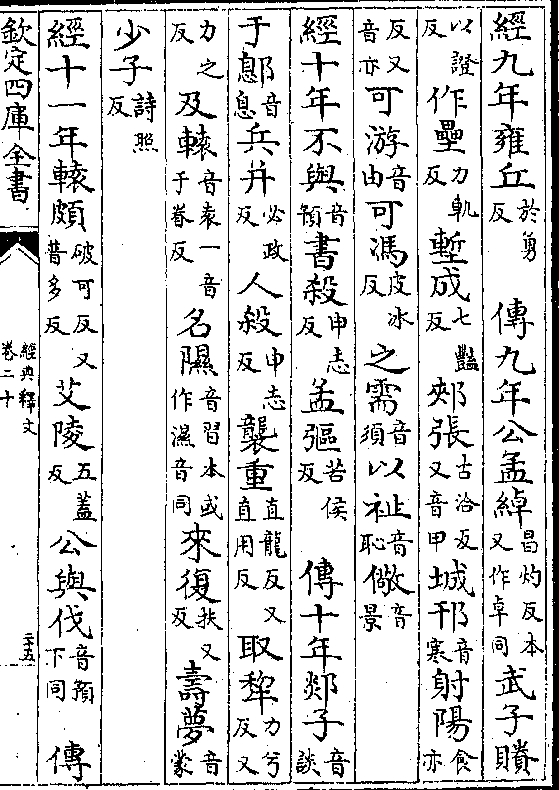 經九年雍丘於勇反　傳九年公孟綽昌灼反本又作卓同武子賸
以證反作壘力軌反塹成七豔反郟張古洽反又音甲城邗音寒射陽食亦
反又音亦可游音由可馮皮冰反之需音須以祉音恥儆音景
經十年不與音預書殺申志反孟彄苦侯反　傳十年郯子音談
于鄎音息兵并必政反人殺申志反襲重直龍反又直用反取犂力兮反又
力之反及轅音袁一音于眷反名隰音習本或作濕音同來復扶又反壽夢音蒙
少子詩照反
經十一年轅頗破可反又普多反艾陵五蓋反公與伐音預下同　傳
欽定四庫全書
經典釋文
卷二十
二十五